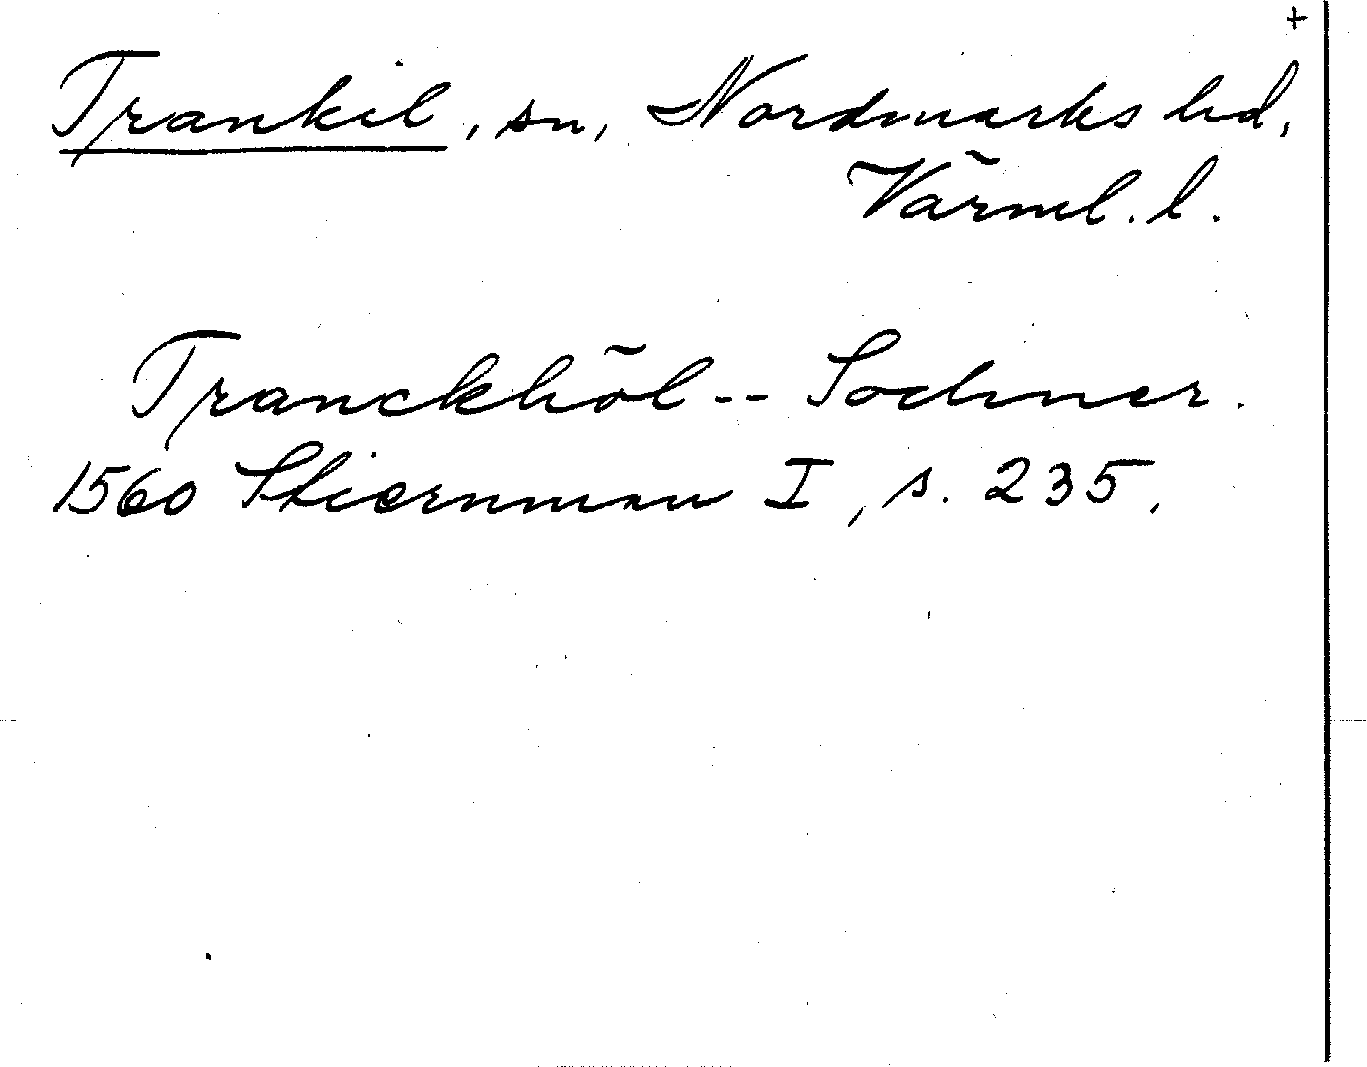 +
Trankil, sn, Nordmarks hd,
Värml. l.
Tranckhöl -- Sochner.
1560 Stiernman I, s. 235.